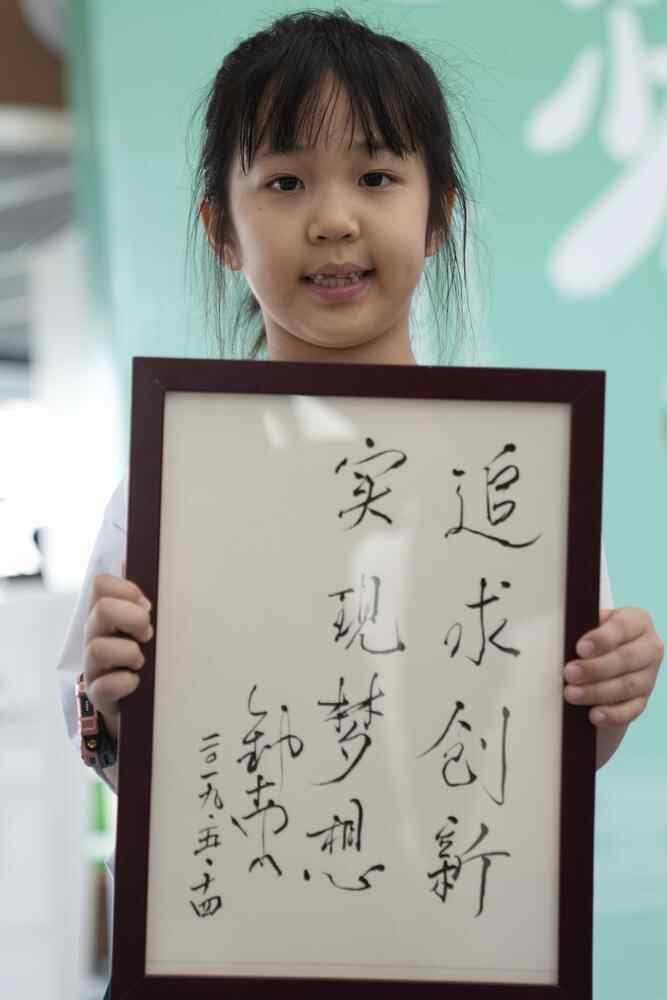 追求创新
实现梦想
二〇一九·五·十四